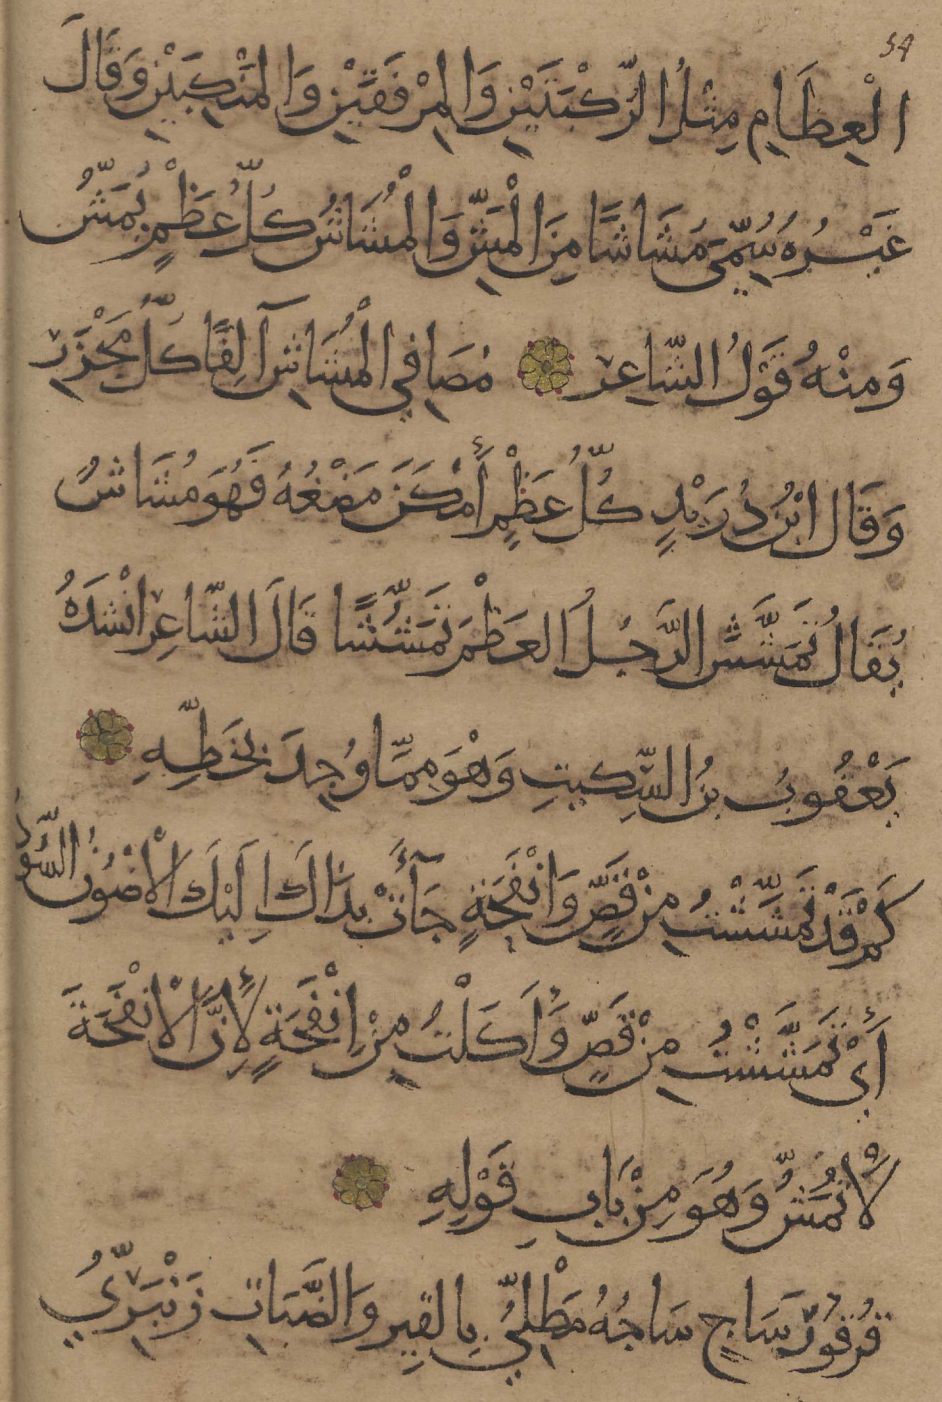 54
الْعِظَامِ مِثْلُ الرُّكْبَتَيْنِ وَالمِرْفَقَيْنِ وَالمَنْكِبَيْنِ وَقَالَ
غَيْرُهُ سُمِّيَ مُشَاشًا مِنَ الْمَشِّ وَالْمُشَاشُ كُلُّ عَظْمٍ يُمَشُّ
وَمِنْهُ قَوْلُ الشَّاعِرِ مُصَافِي الْمُشَاشِ آلِفًا كُلَّ مَجْزَرِ
وَقَالَ ابْنُ دُرَيْدٍ كُلُّ عَظْمٍ أَمْكَنَ مَضْغُهُ فَهُوَ مُشَاشٌ
يُقَالُ تَمَشَّشَ الرَّجُلُ العَظْمَ تَمَشُّشًا قَالَ الشَّاعِرُ انْشَدَهُ
يَعْقُوبُ بنُ السِّكِيتِ وَهْوَ مِمَّا وُجِدَ بِخَطِّهِ
كَمْ قَدْ تَمَشَّشْتُ مِنْ قَصٍّ وَانْفَحَةٍ جَآءَتْ بِذَاكَ إِلَيْكَ الْأَضْوُنُ السُّودُ
أَيْ تَمَشَّشْتُ مِنْ قَصٍّ وَأَكَلْتُ مِنْ اِنْفَحَةٍ لِأَنَّ الْانْفَحَةَ
لَا تُمَشُّ وَهُوَ مِنْ بَابِ قَوْلِهِ
قُرْقُورُ سَاجٍ سَاجُهُ مَطْلِيُّ بِالقِيرِ وَالضَّبَاتِ زَنْبَرِيُّ